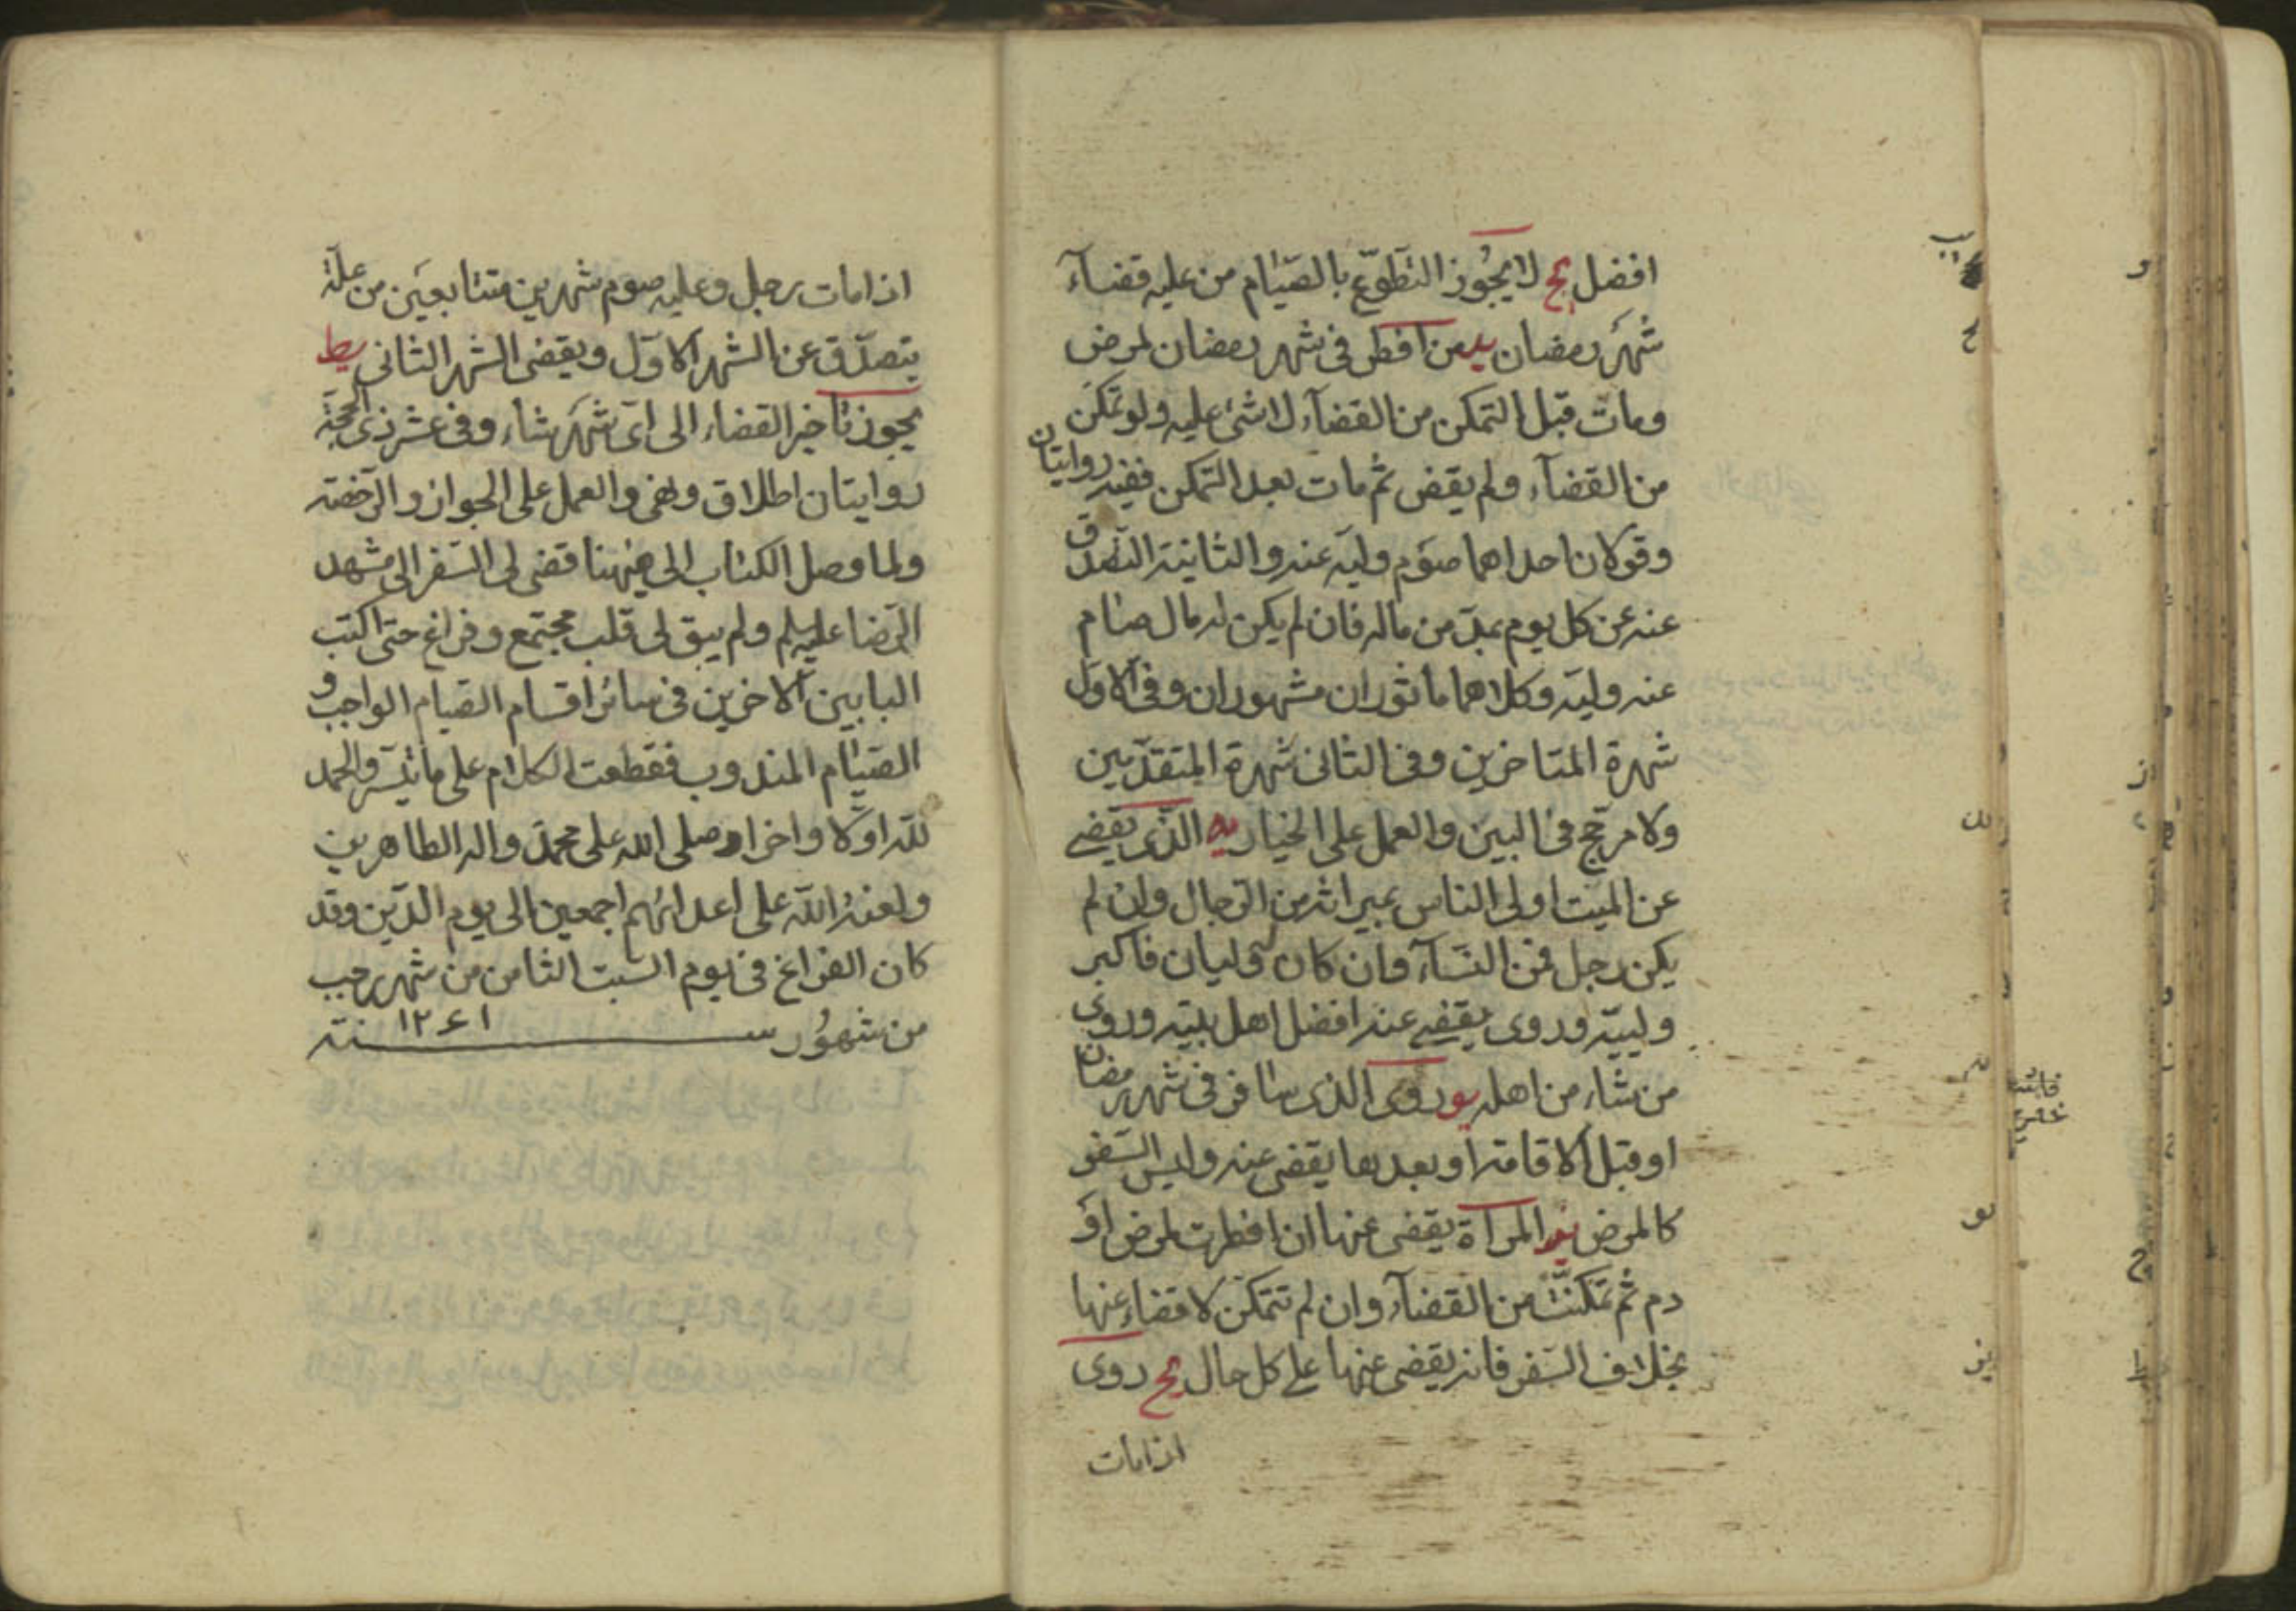 افضل یج لا یجُوز التطوّع بالصّیام من علیه قضآء
شهرُ رمضان ید من افطر فی شهر رمضان لمرض
ومات قبل التمکن من القضآء لا شئ علیه ولو تمکن
من القضآء ولم یقض ثم مات بعد التمکن ففیه روایتان
وقولان احداهما صوم ولیه عنه والثانیة التصدق
عنه عن کل یوم بمدّ من ماله فان لم یکن له مال صام
عنه ولیّه وکلاهما ماثوران مشهوران وفی الاول
شهرة المتاخرین وفی الثانی شهرة المتقدّمین
ولا مرجّح فی البین والعمل علی الخیار یه الذی یقضی
عن المیت اولی الناس بمیراثه من الرّجال وان لم
یکن رجل فمن النسآء وان کان له ولیان فاکبر
ولییّه وروی یقضی عنه افضل اهل بیته وروی
من شاء من اهله یو روی الذی سافر فی شهر رمضان
او قبل الاقامة او بعدها یقضی عنه ولیس السّفر
کالمرض یز المراة یقضی عنها ان افطرت لمرض او
دم ثم تمکنت من القضآء وان لم تتمکن لا قضاء عنها
بخلاف السّفر فانه یقضی عنها علی کل حال یح روی
اذا مات
اذا مات رجل وعلیه صوم شهرین متتابعین من علّة
یتصدّق عن الشهر الاوّل ویقضی الشهر الثانی یط
یجوز تاخیر القضاء الی ای شهر شاء وفی عشر ذی الحجّة
روایتان اطلاق ونهی والعمل علی الجواز والرّخصة
ولما وصل الکتاب الی هیهنا قضی لی السّفر الی مشهد
الرّضا علیه السلم ولم یبق لی قلب مجتمع وفراغ حتی اکتب
البابین الاخرین فی سائر اقسام الصیام الواجب و
الصّیام المندوب فقطعت الکلام علی ما تیسّر والحمد
للّه اوّلا واخرا وصلی الله علی محمّد واله الطاهرین
ولعنة اللّه علی اعدائهم اجمعین الی یوم الدّین وقد
کان الفراغ فی یوم السّبت الثامن من شهر رجب
من شهُور سنة ۱۲۶۱